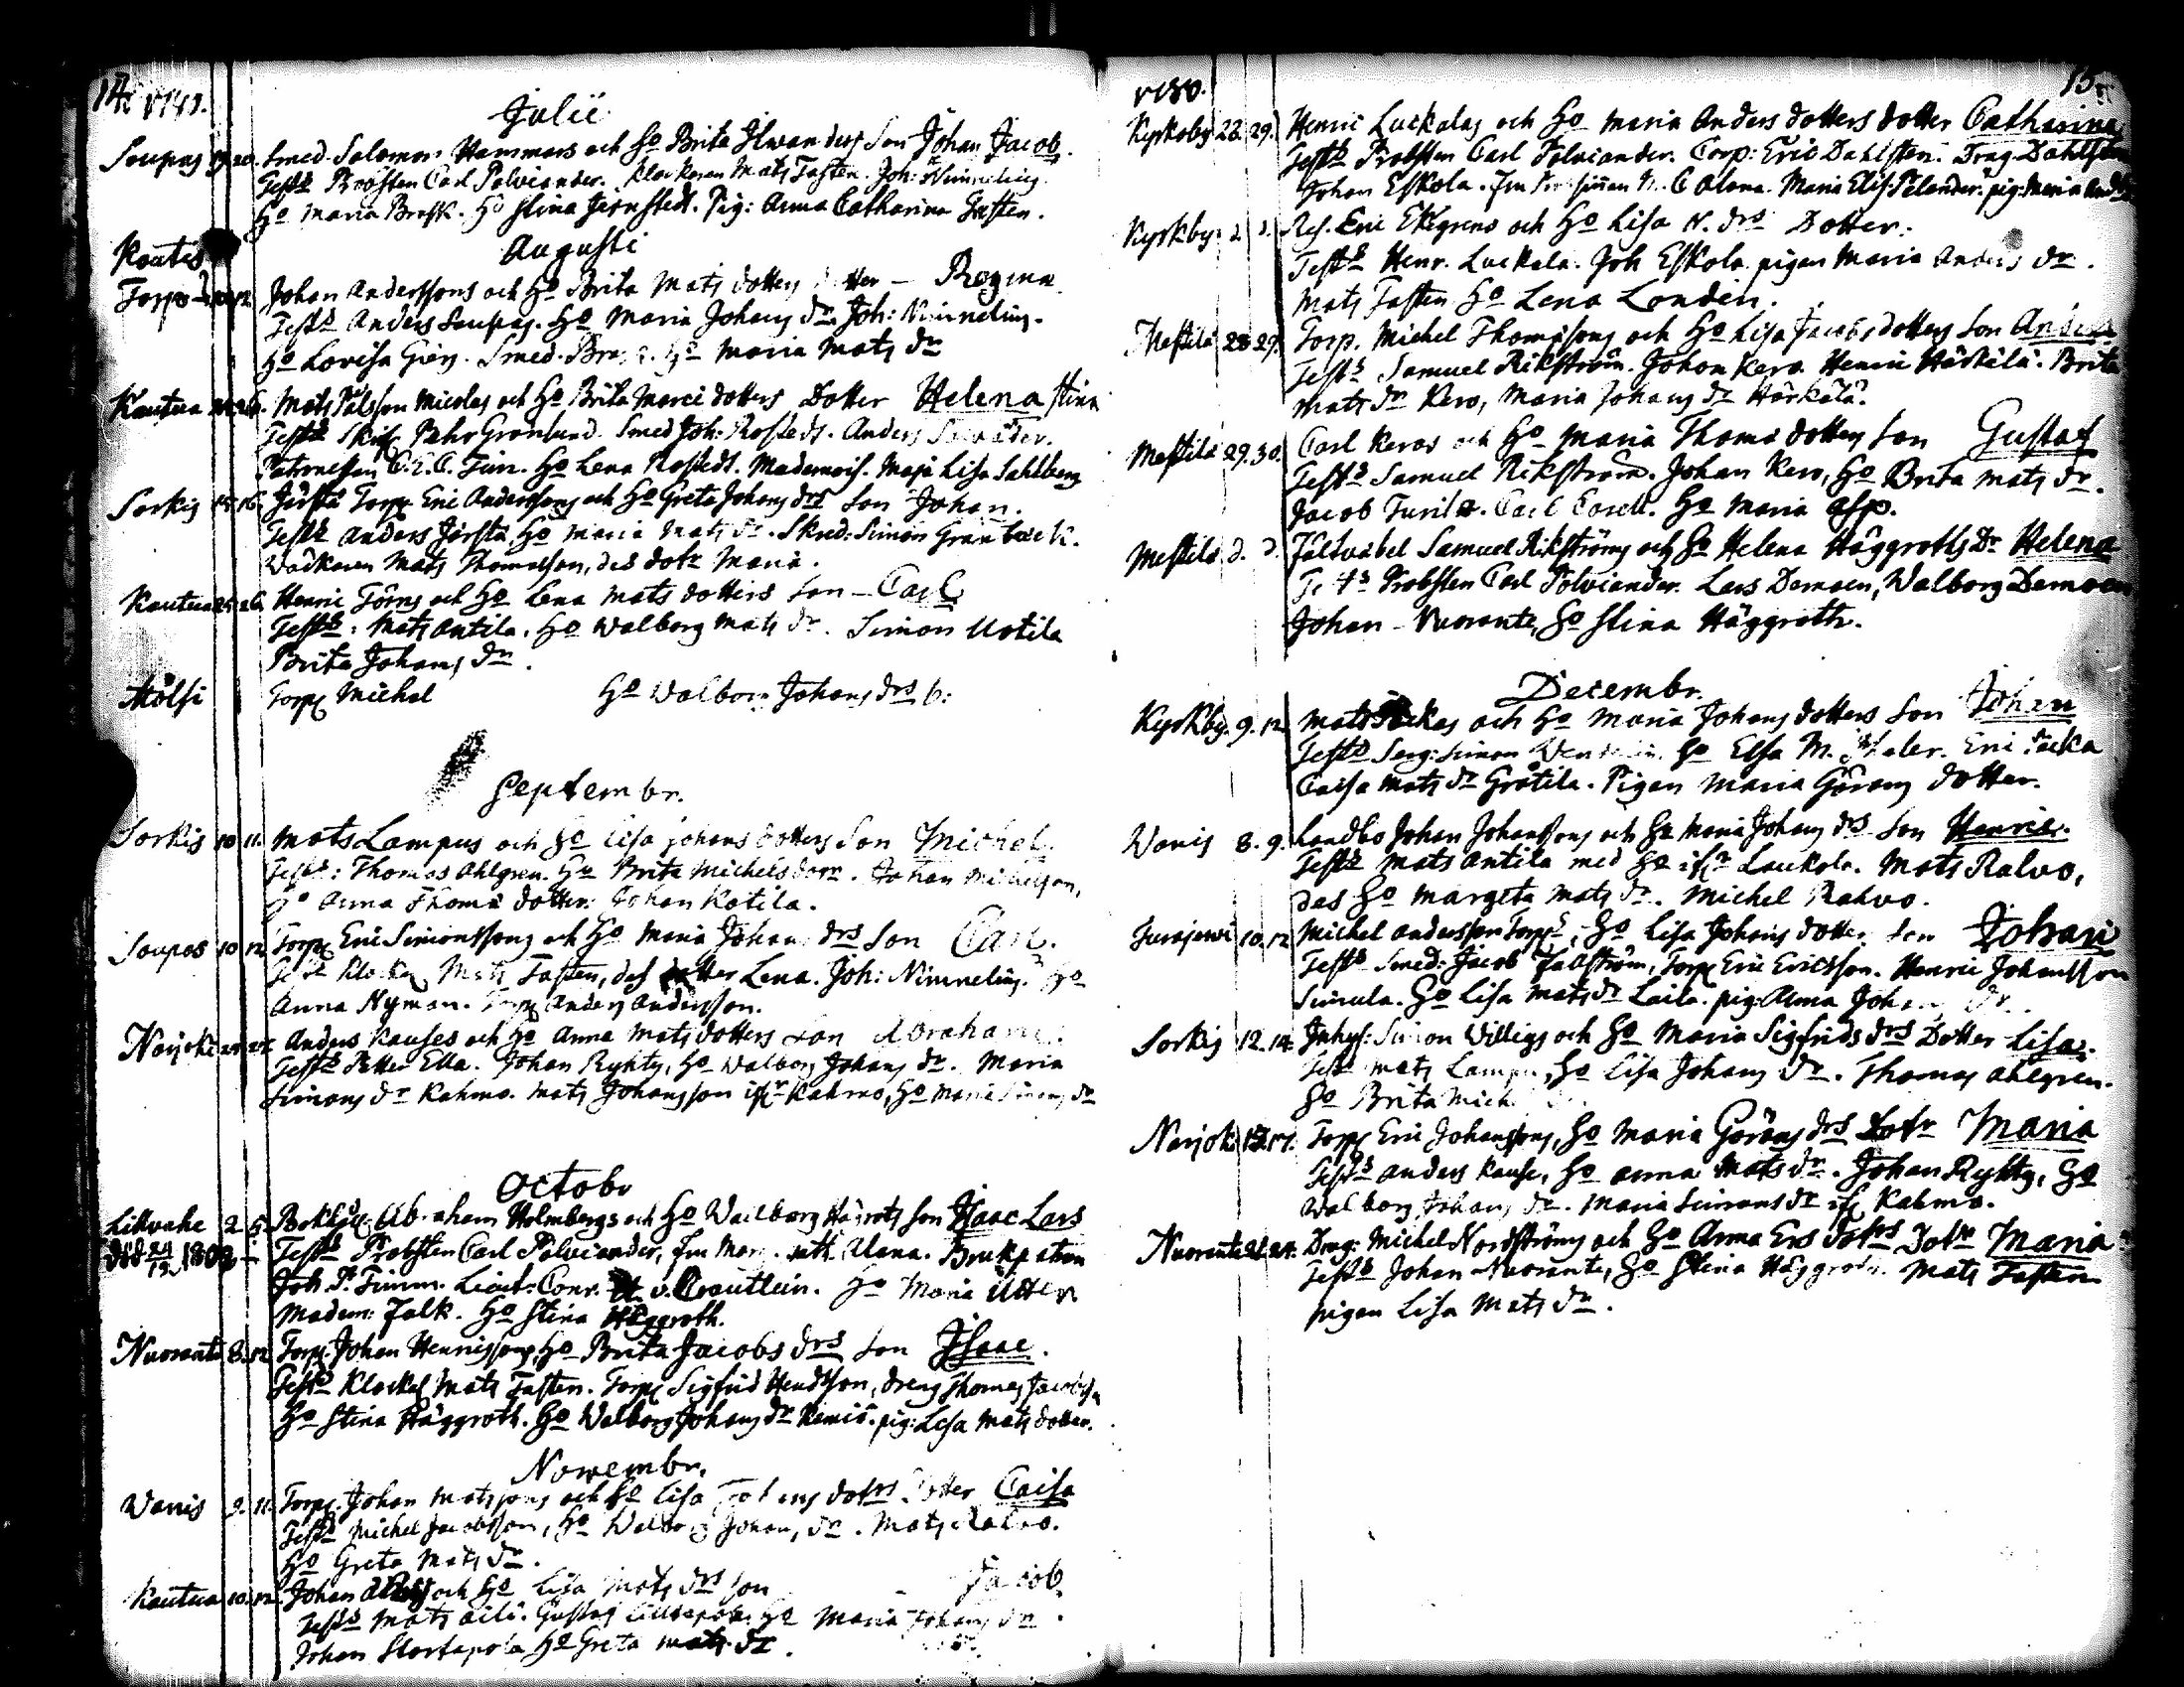 14.
Julii
Soupas 19. 20. Smed. Salomon Hammars och Ho Brita Ilvanders Son Johan Jacob.
Test: Probsten Carl Polviander. Klockaren Mats Fasten. Joh: Nimneling.
Ho Maria Brask. Ho Stina Jernstedt. Pig: Anna Catharina Fasten.
Augusti
Kautis
Torps Johan Anderssons och Ho Brita Mats dotters dotter - Regina
Test: Anders Soupas. Ho Maria Johans dr. Joh: Nimneling.
Ho Lovisa Smed. Ho Maria Mats dr
Kautua Mats Pålsson Nicolas och Ho Brita Marci dotters Dotter Helena Stina
Test: Pehr Gronlund. Smed Joh: Rostedt. Anders
Patronessan C. E. C. Timm. Ho Lena Rostedt. Mademois. Maja Lisa Sahlberg
Sorkis 15. 16. Jersta Torp Eric Anderssons och Ho Greta Johans drs Son Johan.
Test: Anders Jersta, Ho Maria Mats dr. Skred: Simon Granbeck.
Mats Thomasson, des dotr Maria.
Kautua 25. 26. Henric Törns och Ho Lena Mats dotters Son - Carl
Test: Mats Antila. Ho Walborg Mats dr. Simon Uotila
Brita Johans dr.
Mölsi Torp Michel Ho Walborg Johans drs b:
Septembr.
Sorkis 10 11. Mats Lampus och Ho Lisa Johans dotters Son Michel.
Test: Thomas Ahlgren. Ho Brita Michels dotr. Johan Michelson,
Ho Anna Thoma dotter. Johan Kotila.
Soupas 10 12 Torp Eric Simonssons och Ho Maria Johans drs Son Carl.
Test Klock Mats Fasten, des dotter Lena. Joh: Nimneling. Ho
Anna Nyman. Torp Anders Andersson.
Neijoki Anders Kauses och Ho Anna Mats dotters Son Abraham.
Test: Petter Ella. Johan Rykty, Ho Walborg Johans dr. Maria
Simons dr Kahmo. Mats Johansson Kahmo, Ho Maria Simons dr
Octobr
Littvahe 2. 5. Bokh Abraham Holmbergs och Ho Wallborg Hägrots Son Isaac Lars
Test: Probsten Carl Polviander, Fru Mar. Cath. Alana. Brukspatron
Joh. P. Timm. Lieut: Conr. v. Crautlein. Ho Maria Utter
Madem: Falk. Ho Stina Häggroth.
Nuorante 8. 12 Torp Johan Henrissons, Ho Brita Jacobs drs Son Isaac.
Test: Klock Mats Fasten. Torp Sigfrid Hendson, dreng Thomas Jacobss
Ho Stina Häggroth. Ho Walborg Johans dr Kemiö. pig: Lisa Mats dotter.
Novembr.
Wanis 9. 11. Torp Johan Matssons och Ho Lisa Johans dotrs Dotter Caisa
Test: Michel Jacobsson, Ho Walborg Johans dr. Mats Ralvo.
Ho Greta Mats dr.
Kautua 10. 12. Johan och Ho Lisa Mats drs son - Jacob
Test: Mats Aili. Gustaf Lilltapola Ho Maria Johans dr.
Johan Stortapola Ho Greta Mats dr.
15.
Kyrkoby 28. 29. Henric Luckalas och Ho Maria Anders dotters dotter Catharina
Test: Probsten Carl Polviander. Corp: Eric Dahlsten. Drag. Dahlsten
Johan Eskola. C Alana. Maria Elis: Pelander. pig: Maria
Kyrkby d. d. Eric Ekegrens och Ho Lisa N. drs Dotter.
Test: Henr. Luckala. Joh Eskola pigan Maria Anders dr.
Mats Fasten Ho Lena Londen.
Mestilä 28 29. Torp. Michel Thomassons och Ho Lisa Jacobs dotters Son Anders
Test: Samuel Rikström. Johan Kero. Henric Härkälä. Brita
Mats dr Kero, Maria Johans dr Härkälä.
Mestilä 29. 30. Carl Keros och Ho Maria Thoma dotters Son Gustaf
Test: Samuel Rikström. Johan Kero, Ho Brita Mats dr.
Jacob Turila. Carl Ho Maria Asp.
Mestilä d. d. Fältväbel Samuel Rikströms och Ho Helena Häggroths Dr Helena
Test: Probsten Carl Polviander. Lars Demoen, Walborg Demoen
Johan Nuorante, Ho Stina Häggroth.
Decembr.
Kyrkby. 9. 12 Mats och Ho Maria Johans dotters Son Johan
Test: Serg: Simon Ho Elsa M. Eric
Caisa Mats dr Grötila. Pigan Maria Görans dotter.
Wanis 8. 9. Landbo Johan Johanssons och Ho Maria Johans drs Son Henric.
Test: Mats Antila med Ho Laukola. Mats Ralvo,
des Ho Margeta Mats dr. Michel Rahvo.
Turajerwi 10. 12 Michel Andersson Torp, Ho Lisa Johans dotter Son Johan
Test: Smed: Jacob Fallström, Torp Eric Ericsson. Henric Johansson
Simula. Ho Lisa Mats dr Laila. pig: Anna Johans dr.
Sorkis 12. 14. Inhys: Simon Willigs och Ho Maria Sigfrids drs Dotter Lisa.
Test: Mats Lampu, Ho Lisa Johans dr. Thomas Ahlgren.
Ho Brita Mich
Neijoki 17. Torp Eric Johanssons, Ho Maria Görans drs Dotr Maria
Test: Anders Kause, Ho Anna Mats dr. Johan Rykty, Ho
Walborg Johans dr. Maria Simons dr Kahmo.
Nuorante 24. Drag: Michel Nordströms och Ho Anna Ers dotrs Dotr Maria
Test: Johan Nuorante, Ho Stina Häggroth. Mats Fasten
pigan Lisa Mats dr.